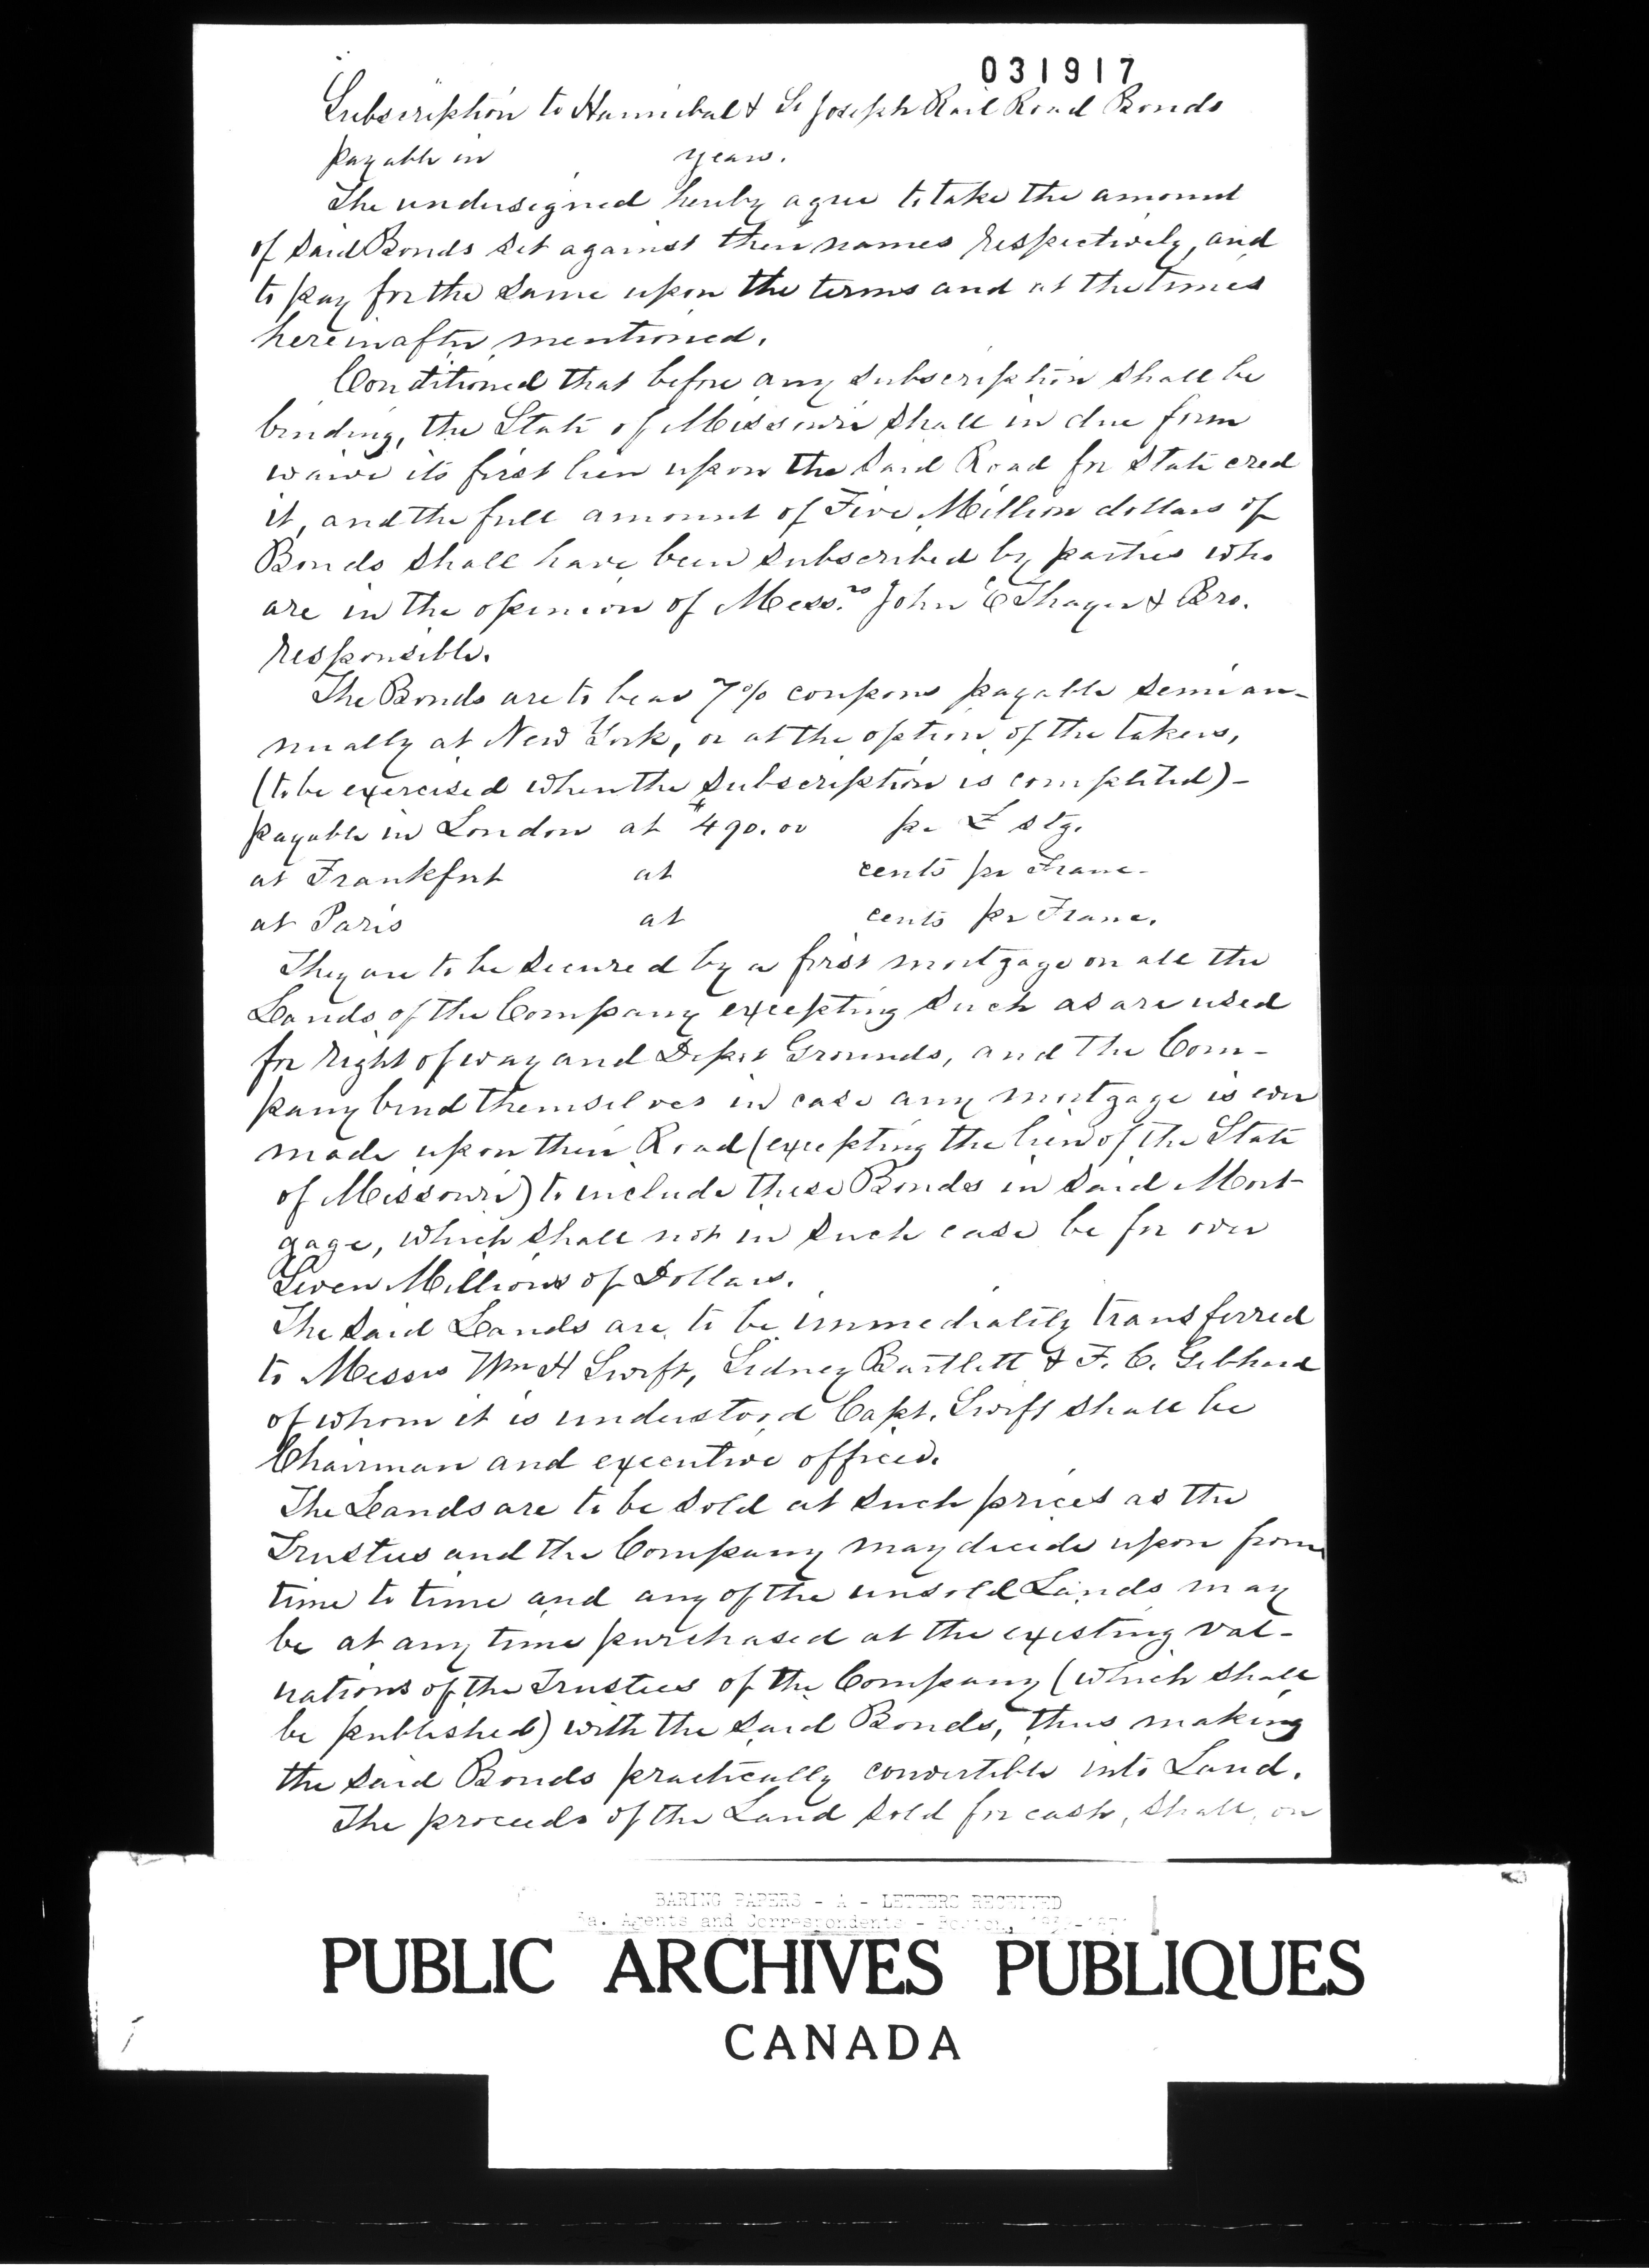 031917
Subscription to Hannibal & St Joseph Rail Road Bonds
payable in years.
The undersigned hereby agree to take the amount
of said Bonds set against their names respectively, and
to pay for the same upon the terms and at the times
hereinafter mentioned.
Conditioned that before any subscription shall be
binding, the State of Missouri shall in due form
waive its first lien upon the said Road for State cred
it, and the full amount of Five Million dollars of
Bonds shall have been subscribed by parties who
are in the opinion of Messrs John E Thayer & Bro.
responsible.
The Bonds are to bear 7% coupons payable semi an-
nually at New York, or at the option of the takers,
(to be exercised when the subscription is completed)-
payable in London at $490.00 pr £ stg.
at Frankfort at cents pr Franc-
at Paris at cents pr Franc.
They are to be secured by a first mortgage on all the
Lands of the Company excepting such as are used
for right of way and Depot Grounds, and the Com-
pany bind themselves in case any mortgage is ever
made upon their Road (excepting the lien of the State
of Missouri) to include these Bonds in said Mort-
gage, which shall not in such case be for over
Seven Millions of Dollars.
The said Lands are to be immediately transferred
to Messrs Wm H Swift, Sidney Bartlett & F. C. Gebhard
of whom it is understood Capt. Swift shall be
Chairman and executive officer.
The Lands are to be sold at such prices as the
Trustees and the Company may decide upon from
time to time and any of the unsold Lands may
be at any time purchased at the existing val-
uations of the Trustees of the Company (which shall
be published) with the said Bonds, thus making
the said Bonds practically convertible into Land.
The proceeds of the Land sold for cash, shall, on
BARING PAPERS - A - LETTERS RECEIVED
Agents and Correspondents - Boston,
PUBLIC ARCHIVES PUBLIQUES
CANADA